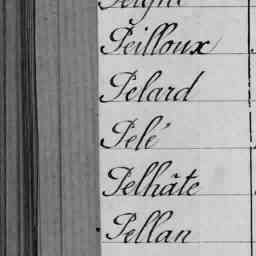 Peilloux
Pelard
Pelé
Pelhâte
Pellan